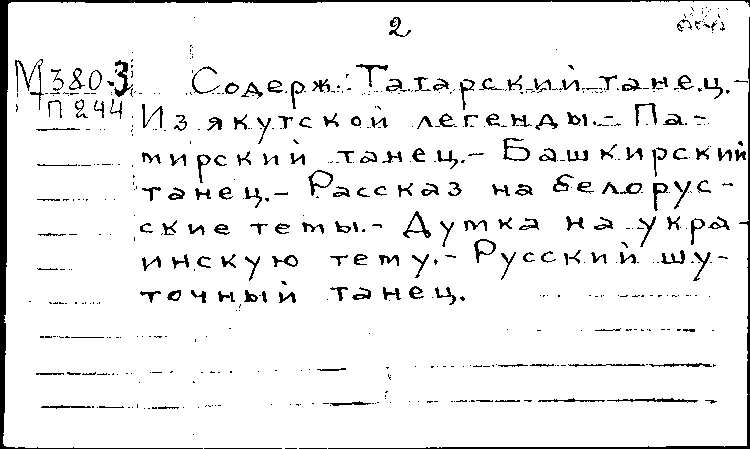 2
М380-3 Содерж.: Татарский танец.-
П244 Из якутской легенды.- Па-
мирский танец.- Башкирский
танец.- Рассказ на белорус-
ские темы.- Думка на укра-
инскую тему.- Русский шу-
точный танец.